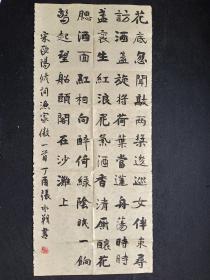 花底忽聞敲兩槳逡巡女伴來尋
訪酒盞旋將荷葉當蓮舟蕩時時
盞裏生紅浪花氣酒香清厮釀花
腮酒面紅相向醉倚綠陰眠一餉
驚起望船頭閣在沙灘上
宋歐陽修詞漁家傲一首丁酉張永書